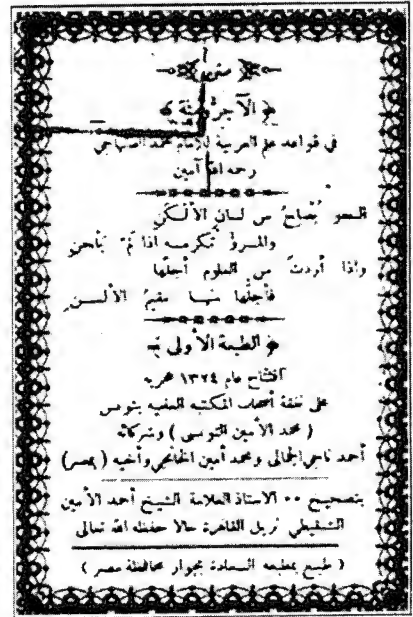 متن
الآجرومية
في قواعد علم العربية للإمام محمد الصنهاجي
رحمه الله آمين
النحو يُصلحُ من لسانِ الألْكَنِ
والمرءُ تُكرمه اذا لمْ يَلْحنِ
واذا أردتَ من العلوم أجلَّها
فأجلُّها منها مقيمُ الألسن
الطبعة الأولى
افتتاح عام ١٣٢٤ هجريه
على نفقة أصحاب المكتبه العلميه بتونس
( محمد الأمين التونسى ) وشركائه
أحمد ناجي الجمالى ومحمد أمين الخانجي وأخيه ( بمصر )
بتصحيح ٠٠ الاستاذ العلامة الشيخ أحمد الأمين
الشنقيطي نزيل القاهرة حالا حفظه الله تعالى
( طبع بمطبعه السعادة بجوار محافظة مصر )